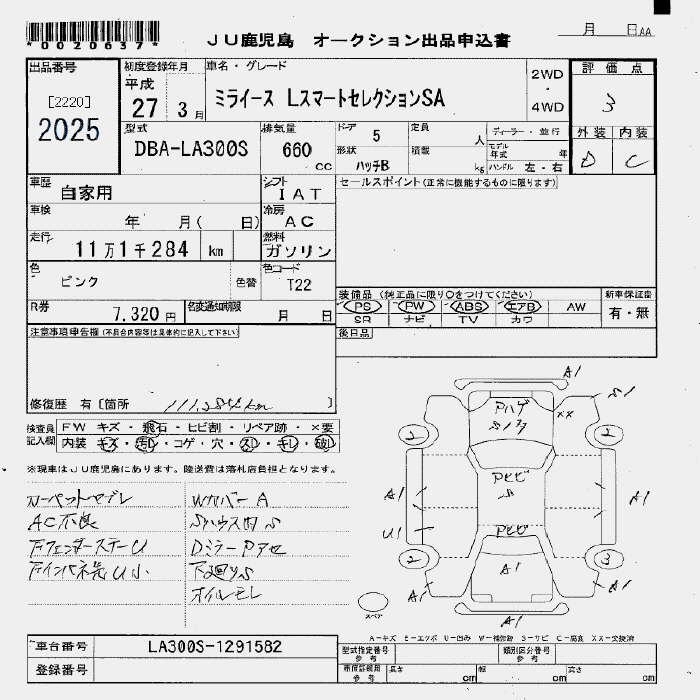 *0020637*
JU鹿児島 オークション出品申込書
月 日AA
出品番号
[2220]
2025
初度登録年月
平成
27 3月
車名・グレード
ミライース LスマートセレクションSA
2WD
・
4WD
評価点
3
外装 内装
D C
型式
DBA-LA300S
排気量
660
cc
ドア 5
形状 ハッチB
定員 人
積載 kg
ディーラー・並行
モデル年式 年
ハンドル 左・右
車歴
自家用
シフト
IAT
セールスポイント(正常に機能するものに限ります)
車検
年 月( 日)
冷房
AC
走行
11万1千284 km
燃料
ガソリン
色
ピンク
色替
色コード
T22
R券
7,320円
名変通知期限
月 日
装備品(純正品に限り○をつけてください)
PS PW ABS エアB AW
SR ナビ TV カワ
新車保証書
有・無
後日品
注意事項申告欄(不具合内容等は具体的に記入して下さい)
修復歴 有〔箇所 111,284km 〕
検査員
記入欄
FW キズ・飛石・ヒビ割・リペア跡・×要
内装 キズ・汚レ・コゲ・穴・スレ・キレ・破レ
※現車はJU鹿児島にあります。陸送費は落札店負担となります。
カーペットヤブレ
AC不良
WカバーA
SハウスS
DミラーPアセ
下廻りS
オイルモレ
A1
Pハゲ
S1
XX
2
2
Pヒビ
S
A1
A1
U1
Pヒビ
A1
2
3
A1
A1
A1
スペア
A-キズ E-エクボ U-凹み W-補修跡 S-サビ C-腐食 XX-交換済
車台番号
LA300S-1291582
登録番号
型式指定番号
参考
類別区分番号
参考
車庫証明用
参考
長さ cm
幅 cm
高さ cm